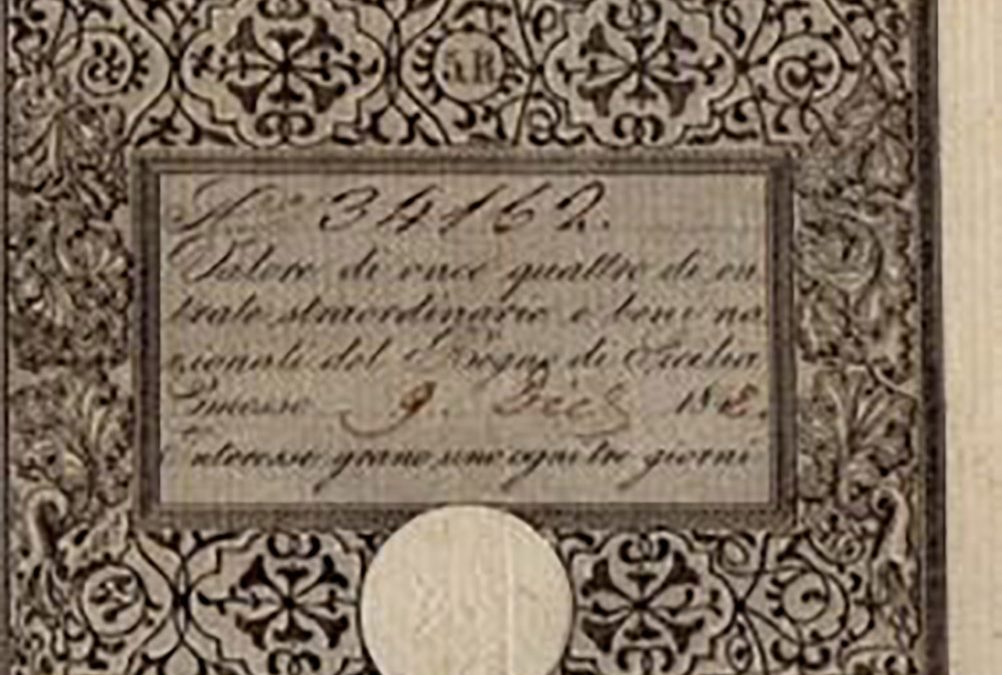 N.º 34162.
Valore di once quattro di en
trate straordinarie e beni na
zionali del Regno di Sicilia
Emesso 9. 184
Interesse grano uno ogni tre giorni